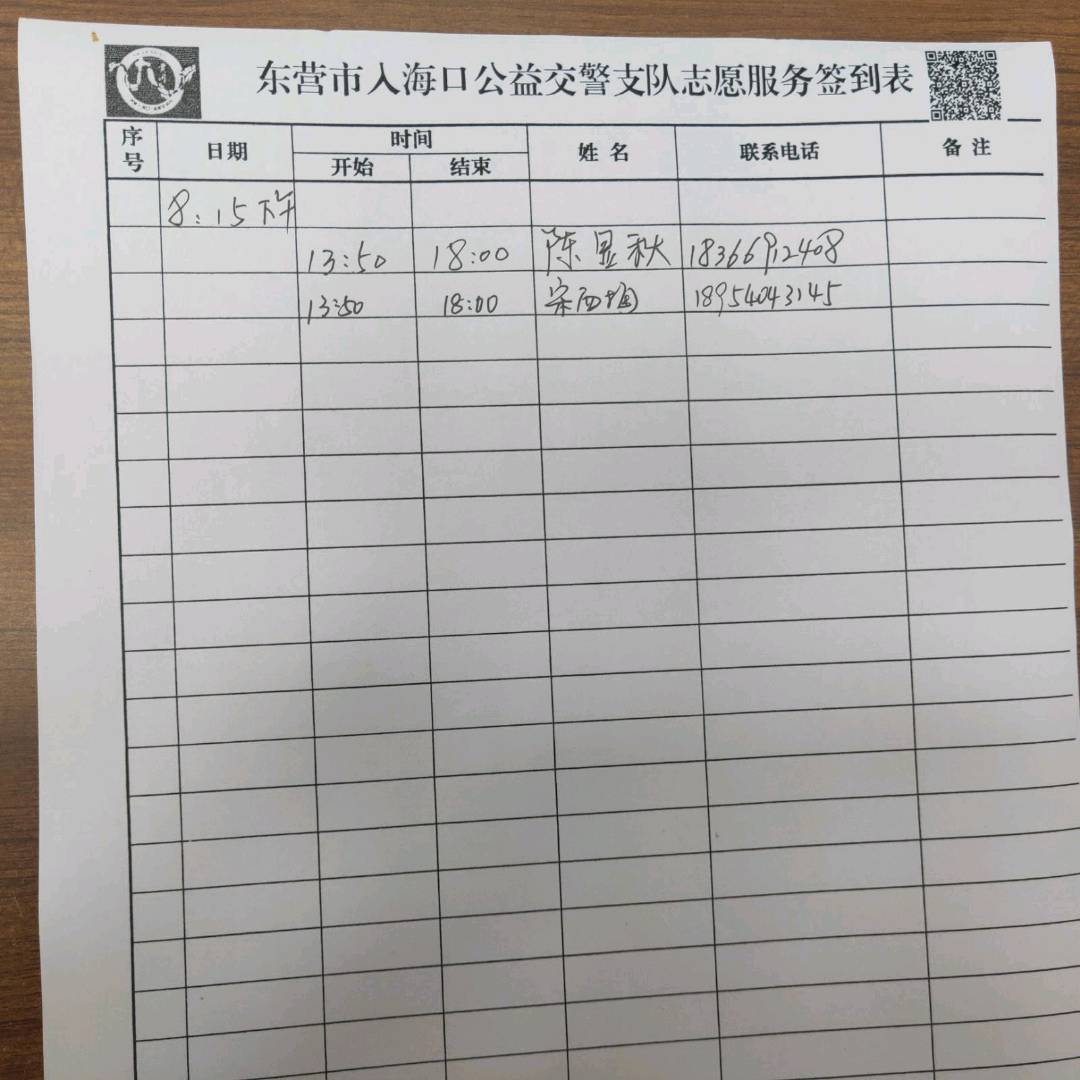 东营市入海口公益交警支队志愿服务签到表
序号 日期 时间 姓名 联系电话 备注
开始 结束
8:15下午
13:50 18:00 陈显秋 18366912408
13:50 18:00 宋 18954043145